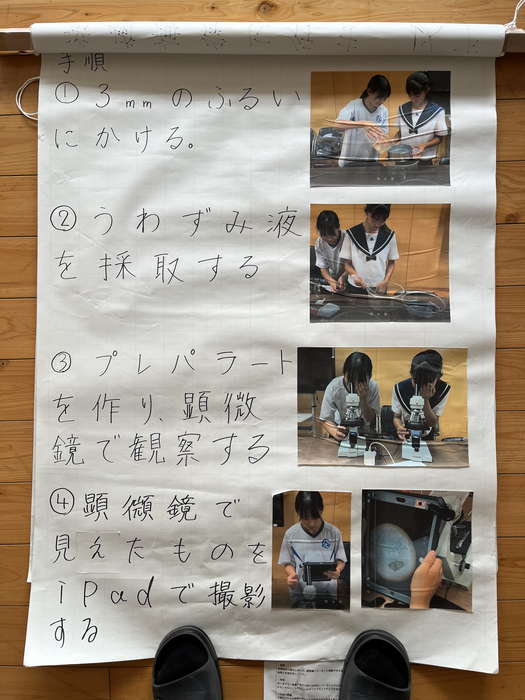 手順
① 3mmのふるい
にかける。
② うわずみ液
を採取する
③ プレパラート
を作り、顕微
鏡で観察する
④ 顕微鏡で
見えたものを
iPadで撮影
する